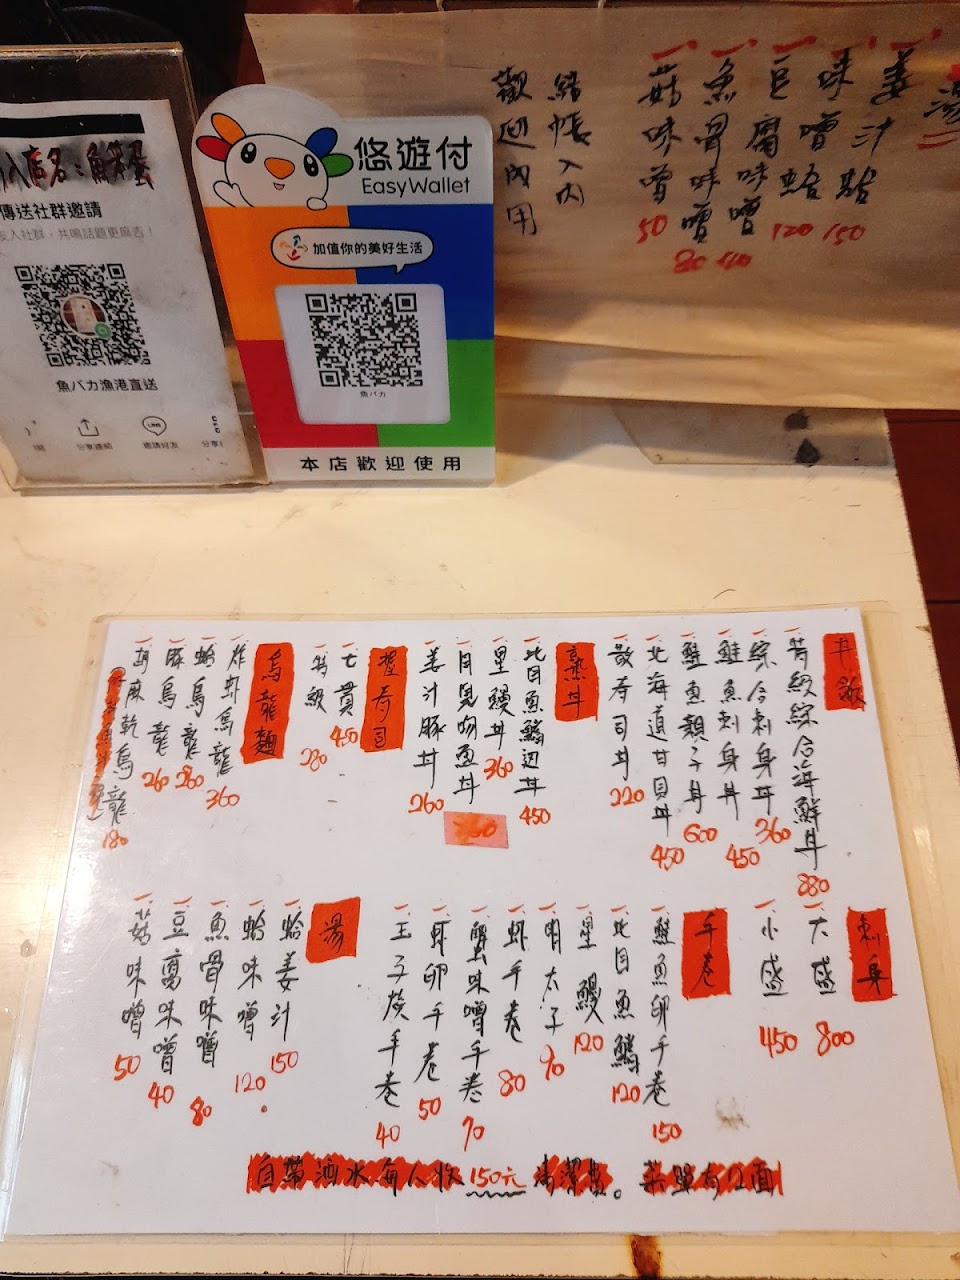 店名:魚
傳送社群邀請
友入社群，共鳴話題更麻吉！
魚バカ漁港直送
分享連結
邀請好友
LINE
悠遊付
EasyWallet
加值你的美好生活
魚バカ
本店歡迎使用
湯
姜汁蛤 150
味噌蛤 120
豆腐味噌 40
魚骨味噌 80
菇味噌 50
結帳入內
歡迎內用
丼飯
特級綜合海鮮丼 880
綜合刺身丼 360
鮭魚刺身丼 450
鮭魚親子丼 600
北海道甘貝丼 450
散寿司丼 220
熟丼
比目魚鰭边丼 450
星鰻丼 360
月見吻魚丼
姜汁豚丼 260
握寿司
七貫 450
特級 280
烏龍麵
炸虾烏龍 360
蛤烏龍 260
豚烏龍 260
胡麻乾烏龍 180
刺身
大盛 800
小盛 450
手卷
鮭魚卵手卷 150
比目魚鰭 120
星鰻 120
明太子 90
虾手卷 80
蟹味噌手卷 70
虾卵手卷 50
玉子燒手卷 40
湯
蛤姜汁 150
蛤味噌 120
魚骨味噌 80
豆腐味噌 40
菇味噌 50
自帶酒水每人收150元清潔費。菜單有2面